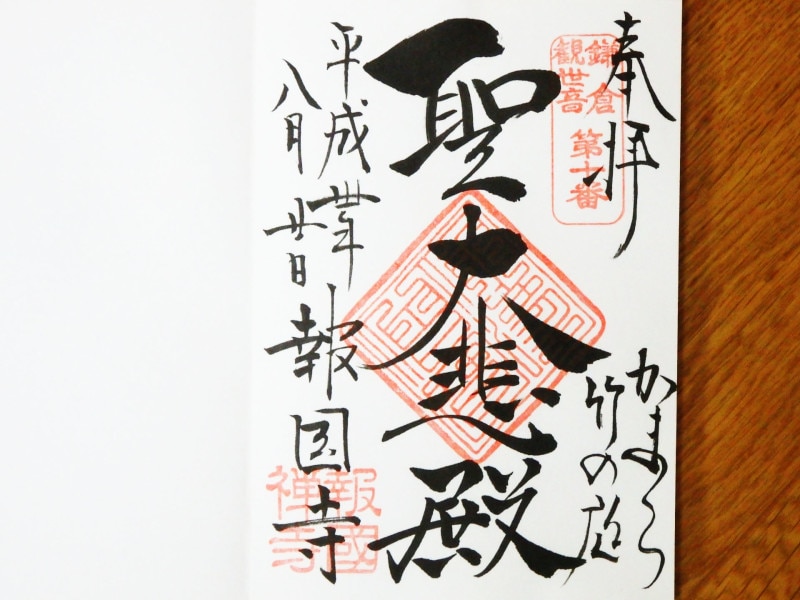 奉拝
かまくら
竹の庭
鎌倉
観世音
第十番
聖大悲殿
平成卅年
八月廿日
報国寺
報國
禅寺